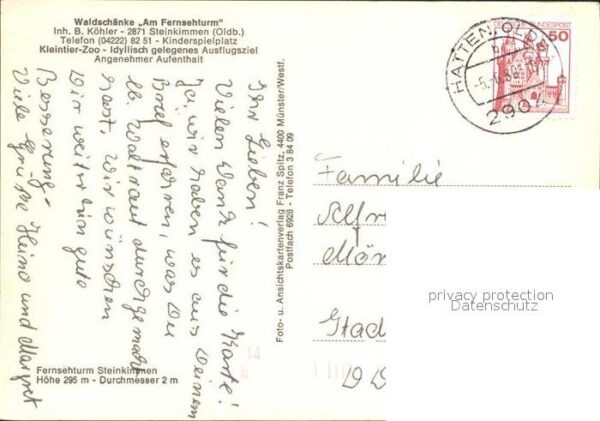 Waldschänke „Am Fernsehturm"
Inh. B. Köhler - 2871 Steinkimmen (Oldb.)
Telefon (04222) 82 51 - Kinderspielplatz
Kleintier-Zoo - Idyllisch gelegenes Ausflugsziel
Angenehmer Aufenthalt
Ihr Lieben!
Vielen Dank für die Karte!
Ja, wir haben es aus Deinem
Brief erfahren, was Du
lb. Waltraut durchgemacht
hast. Wir wünschen
Dir weiterhin gute
Besserung.
Viele Grüße Heino und Margret
Fernsehturm Steinkimmen
Höhe 295 m - Durchmesser 2 m
Foto- u. Ansichtskartenverlag Franz Spitz, 4400 Münster/Westf.
Postfach 6928 - Telefon 3 84 09
HATTEN, OLDB
2904
BUNDESPOST
50
Familie
Alfr
Mön
Stad
privacy protection
Datenschutz
14